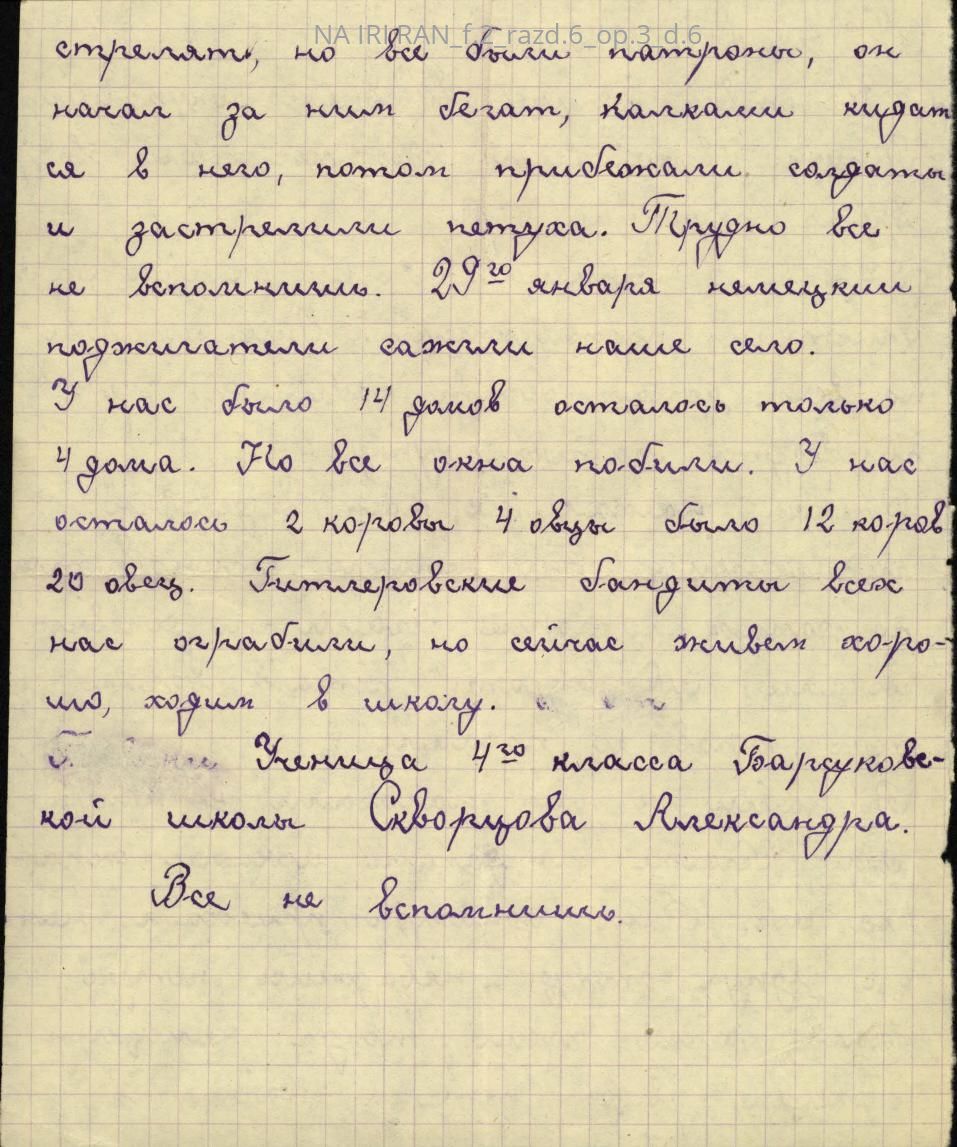 NA IRI RAN_f.2_razd.6_op.3_d.6
стрелят, но все были патроны, он
начал за ним бегат, палками кидат
ся в него, потом прибежали солдаты
и застрелили петуха. Трудно все
не вспомнишь. 29го января немецкии
поджигатели сажгли наше село.
У нас было 14 домов осталось только
4 дома. Но все окна побили. У нас
осталось 2 коровы 4 овцы было 12 коров
20 овец. Гитлеровские бандиты всех
нас ограбили, но сейчас живем хоро-
шо, ходим в школу.
Ученица 4го класса Барсуковс-
кой школы Скворцова Александра.
Все не вспомнишь.